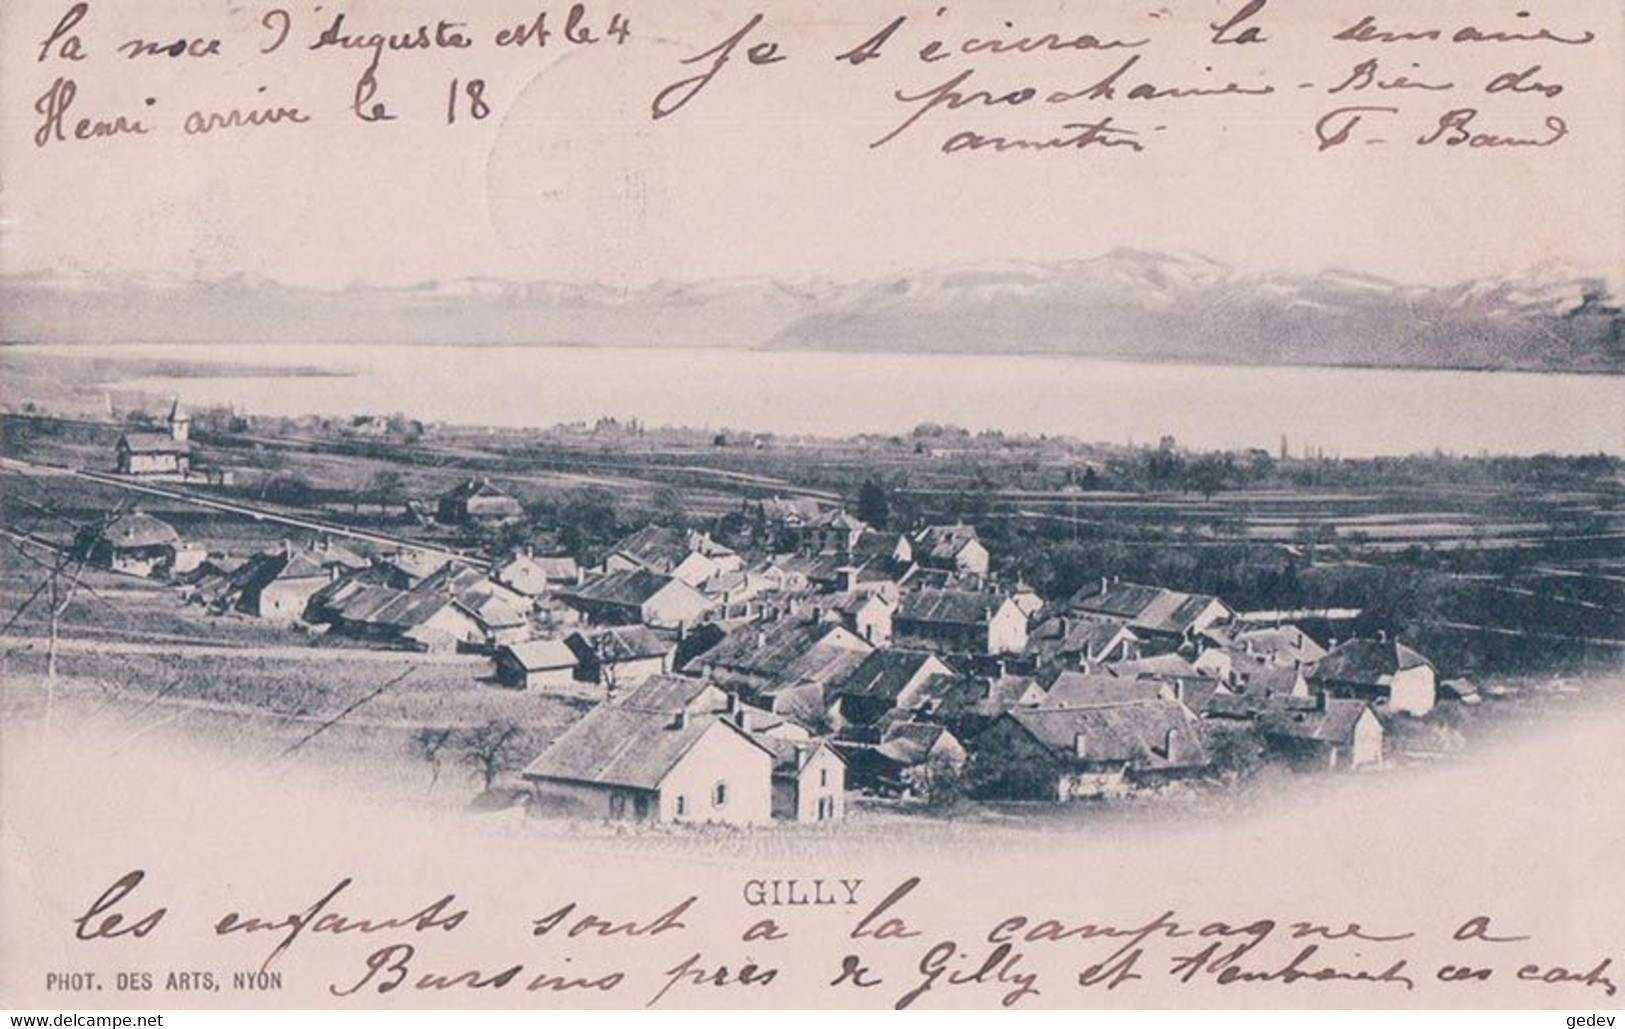 la noce d'Auguste est le 4
Henri arrive le 18
Je t'écrirai la semaine
prochaine - Bien des
amitiés F. Baud
GILLY
les enfants sont a la campagne a
Bursins près de Gilly et t'envoient ces cartes
PHOT. DES ARTS, NYON
https://www.delcampe.net
gedev